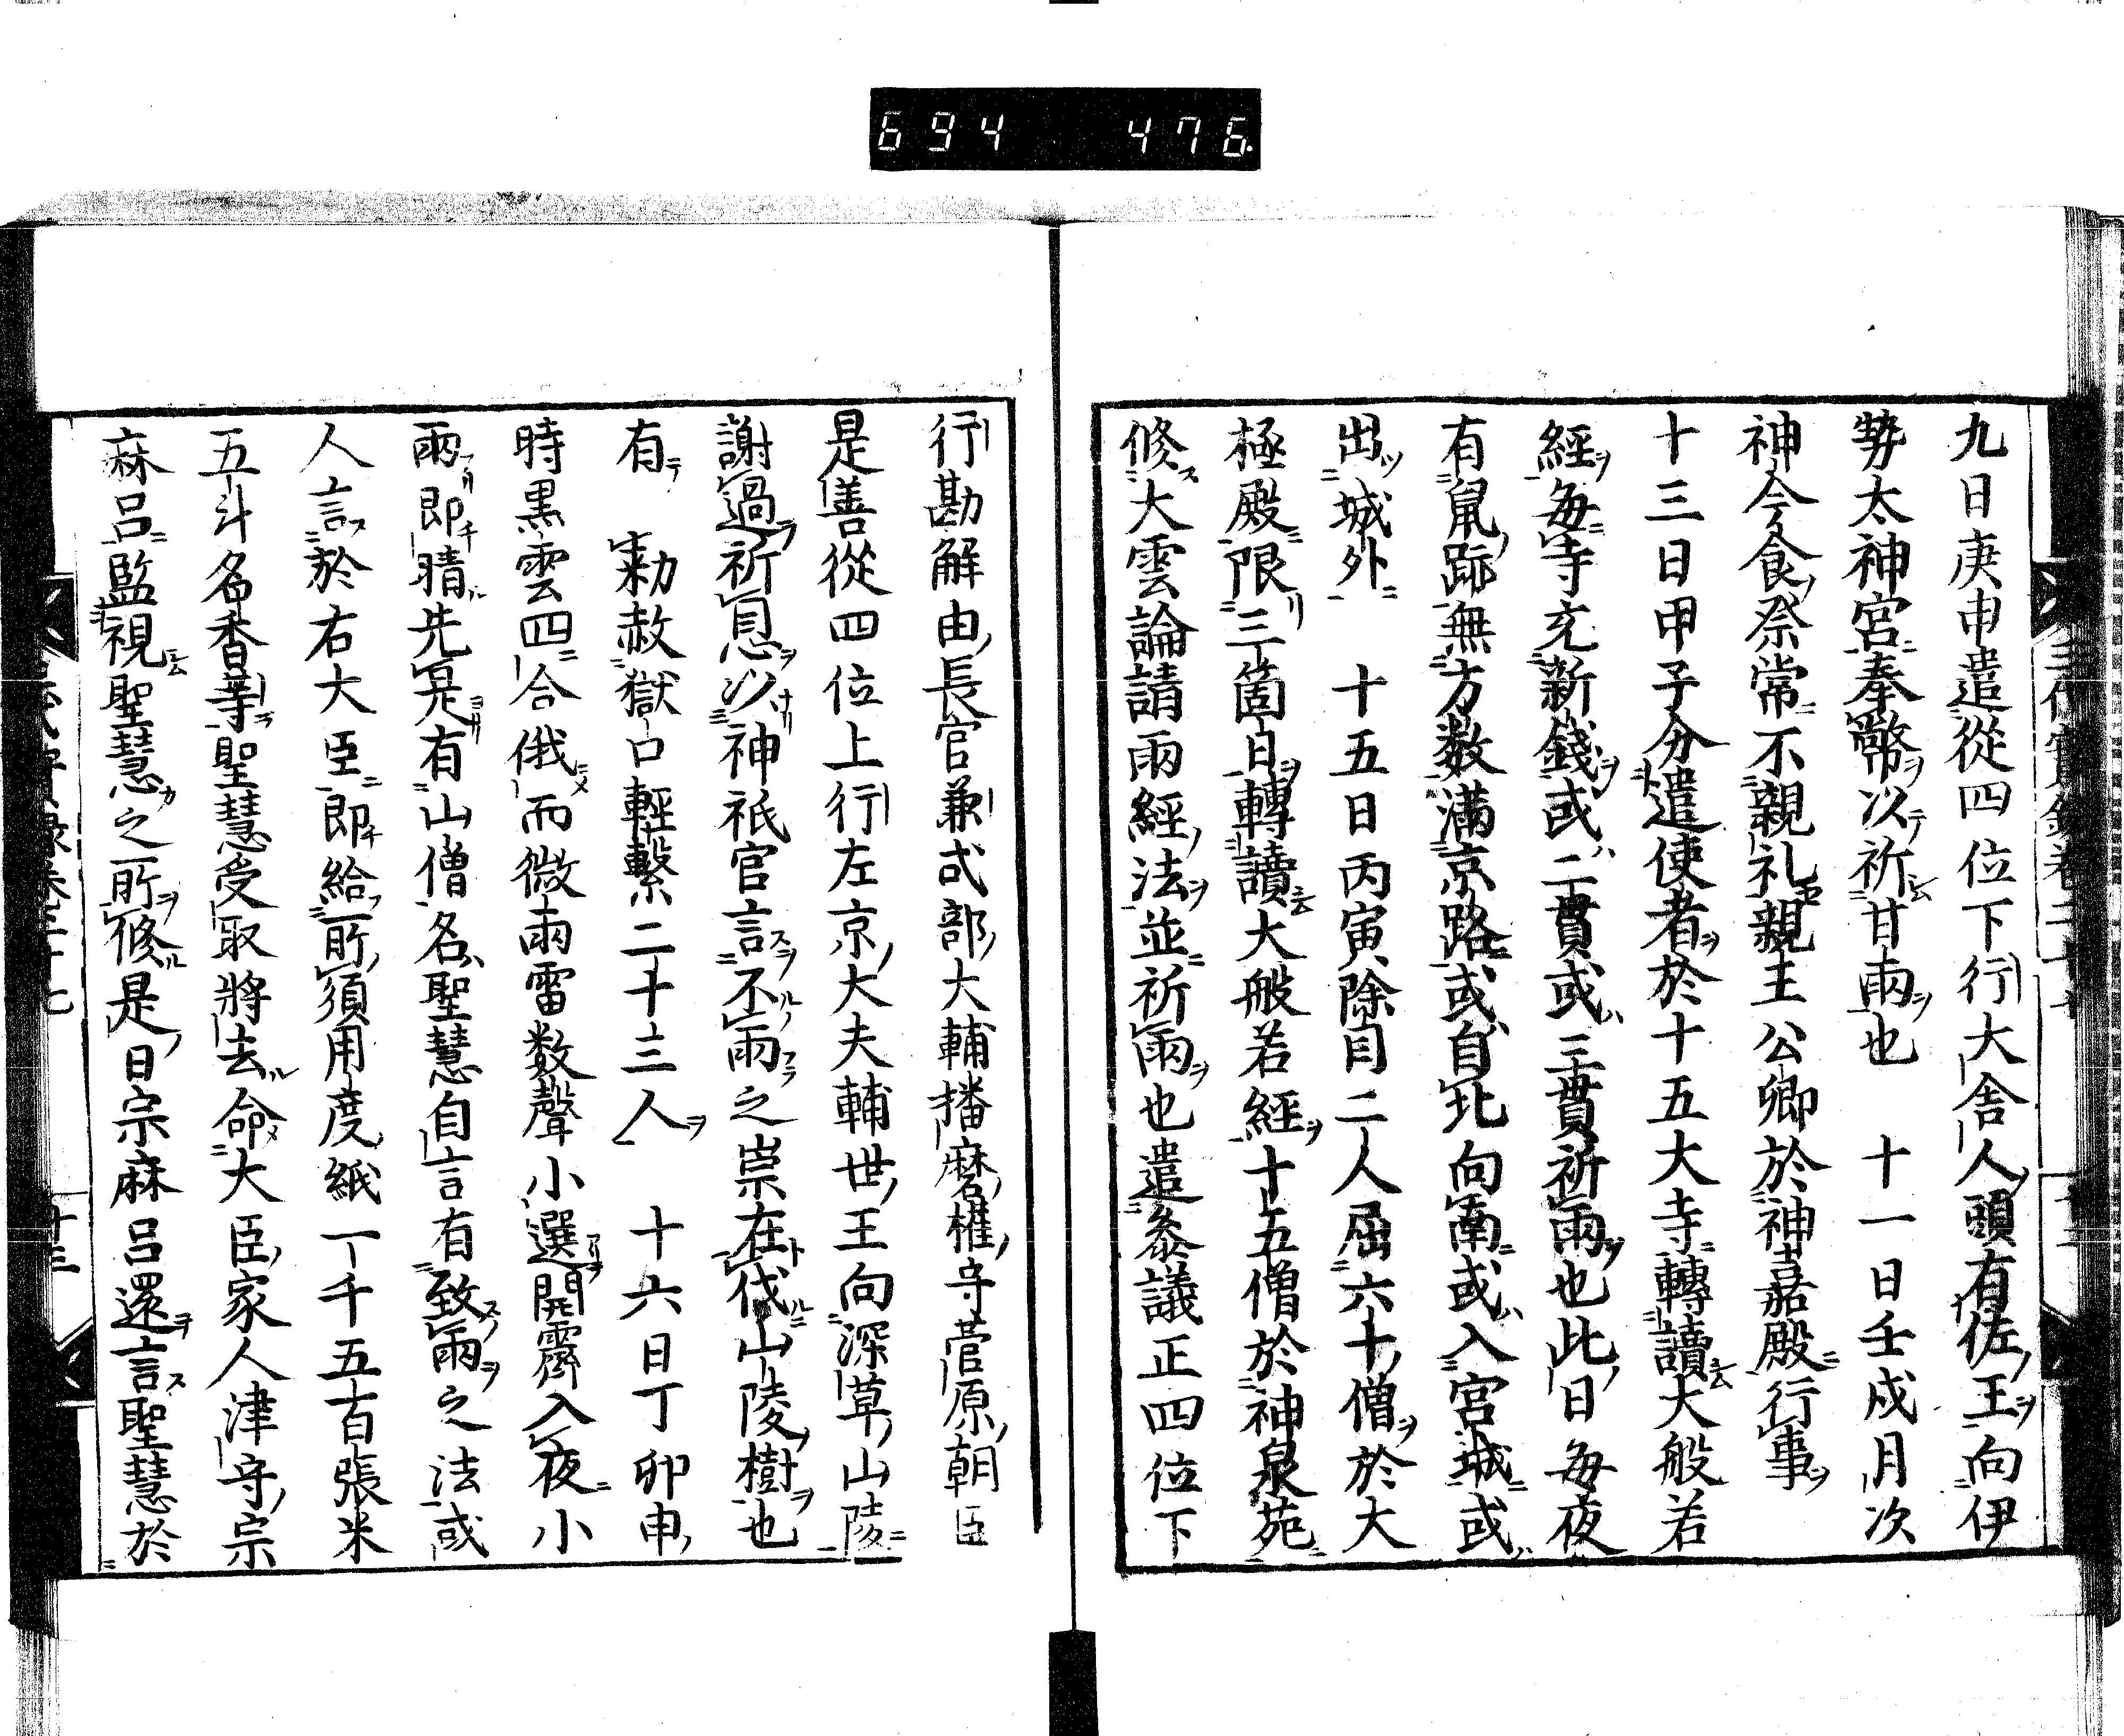 694 476
九日庚申遣從四位下行大舎人頭有佐王向伊
勢太神宮奉幣以祈甘雨也 十一日壬戌月次
神今食祭常不親礼親王公卿於神嘉殿行事
十三日甲子分遣使者於十五大寺轉讀大般若
經每寺充新錢或二貫或三貫祈雨也此日每夜
有鼠跡無方数滿京路或自北向南或入宮城或
出城外 十五日丙寅除目二人屈六十僧於大
極殿限三箇日轉讀大般若經十五僧於神泉苑
修大雲論請雨經法並祈雨也遣叅議正四位下
行勘解由長官兼式部大輔播磨権守菅原朝臣
是善從四位上行左京大夫輔世王向深草山陵
謝過祈恩以神祇官言不雨之祟在伐山陵樹也
有 勅赦獄囗輕繫二十三人 十六日丁卯申
時黒雲四合俄而微雨雷数聲小選開霽入夜小
雨即晴先是有山僧名聖慧自言有致雨之法或
人言於右大臣即給所須用度紙一千五百張米
五斗名香等聖慧受取將去命大臣家人津守宗
麻呂監視聖慧之所修是日宗麻呂還言聖慧於